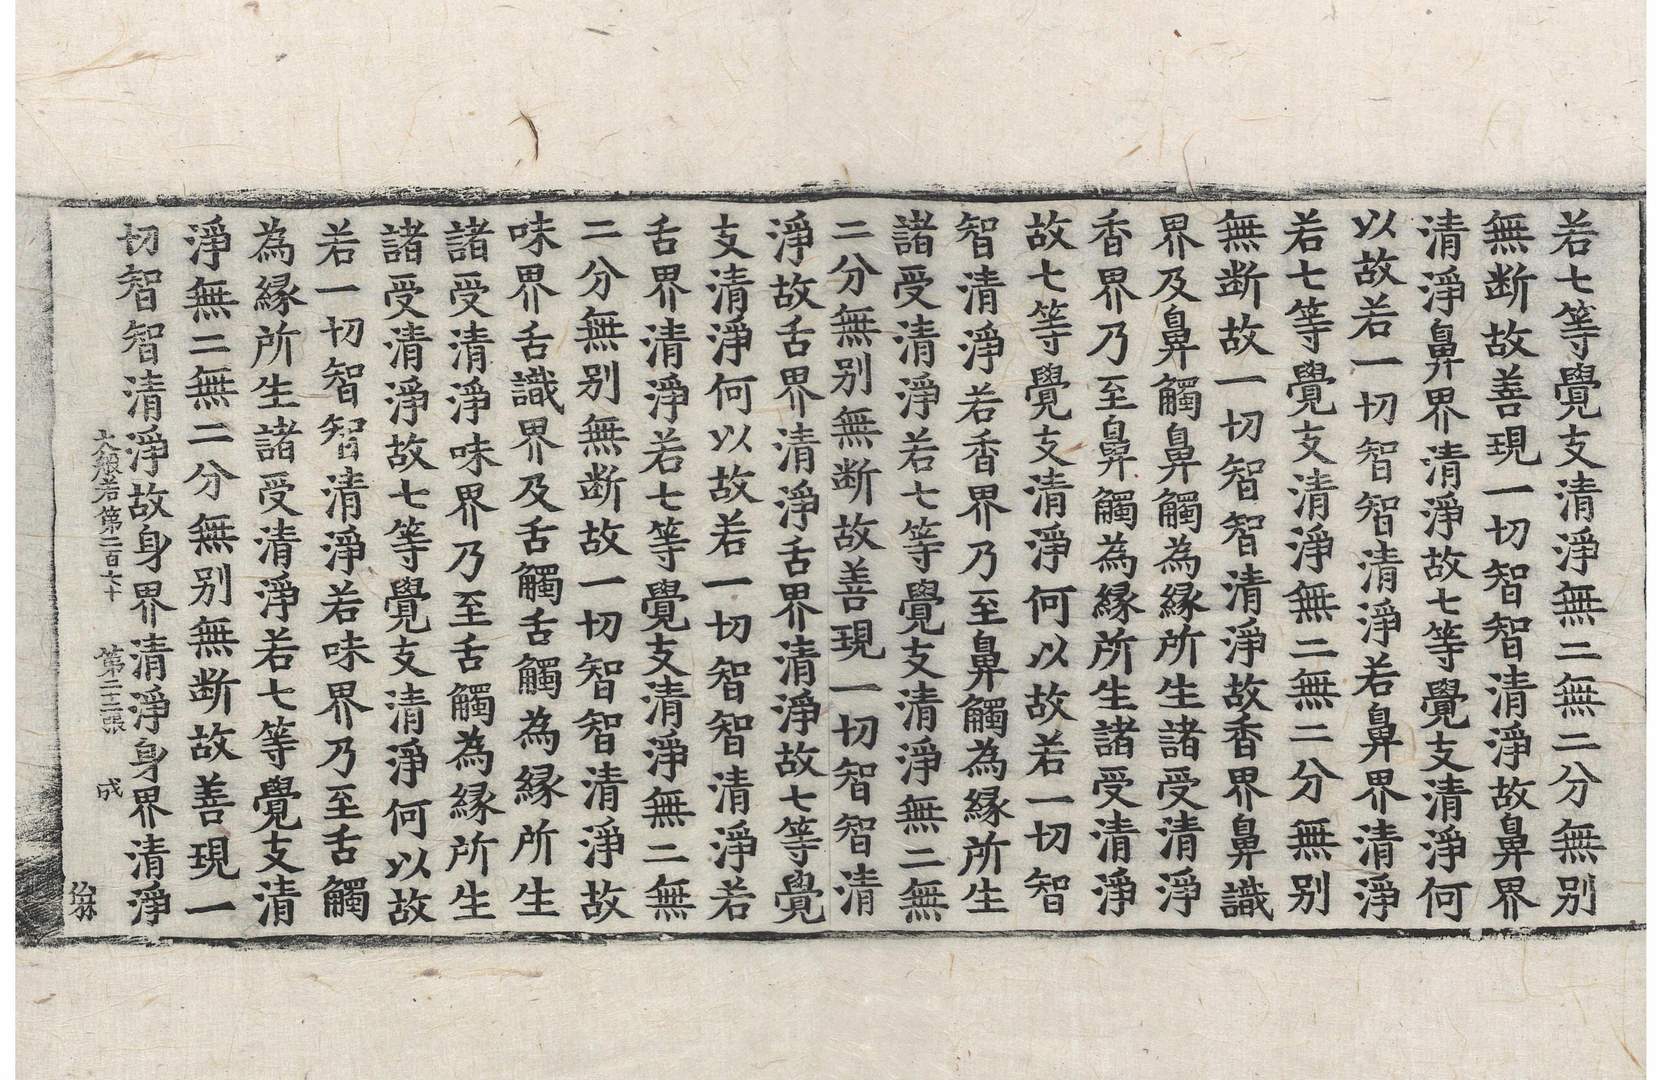 若七等覺支清淨無二無二分無别
無断故善現一切智智清淨故鼻界
清淨鼻界清淨故七等覺支清淨何
以故若一切智智清淨若鼻界清淨
若七等覺支清淨無二無二分無别
無断故一切智智清淨故香界鼻識
界及鼻觸鼻觸為縁所生諸受清淨
香界乃至鼻觸為縁所生諸受清淨
故七等覺支清淨何以故若一切智
智清淨若香界乃至鼻觸為縁所生
諸受清淨若七等覺支清淨無二無
二分無别無断故善現一切智智清
淨故舌界清淨舌界清淨故七等覺
支清淨何以故若一切智智清淨若
舌界清淨若七等覺支清淨無二無
二分無别無断故一切智智清淨故
味界舌識界及舌觸舌觸為縁所生
諸受清淨味界乃至舌觸為縁所生
諸受清淨故七等覺支清淨何以故
若一切智智清淨若味界乃至舌觸
為縁所生諸受清淨若七等覺支清
淨無二無二分無别無断故善現一
切智智清淨故身界清淨身界清淨
大般若第二百六十 第二十二張 成